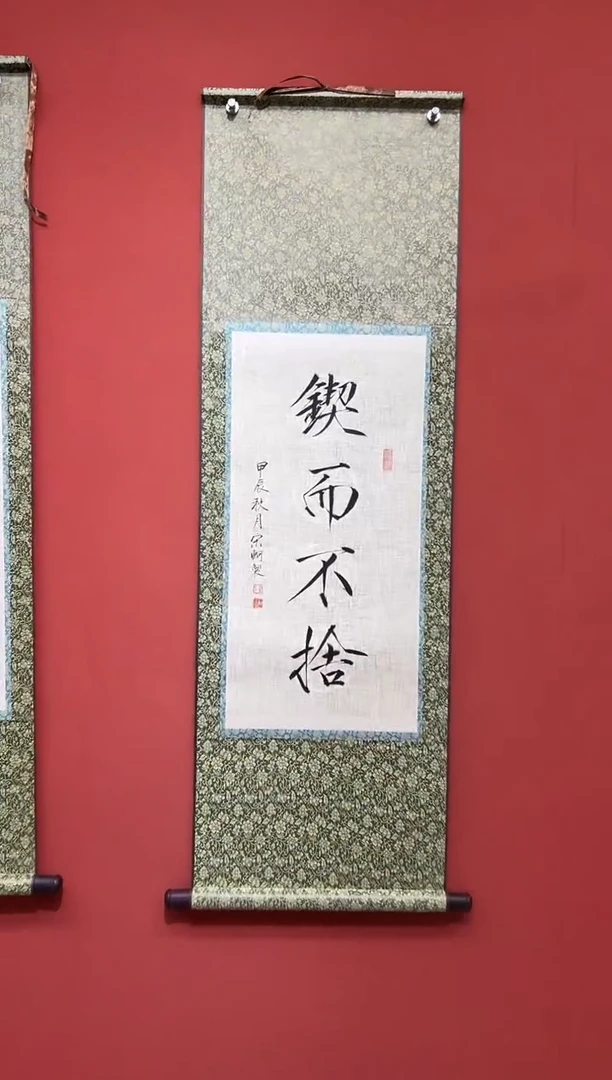 鍥而不捨
甲辰秋月